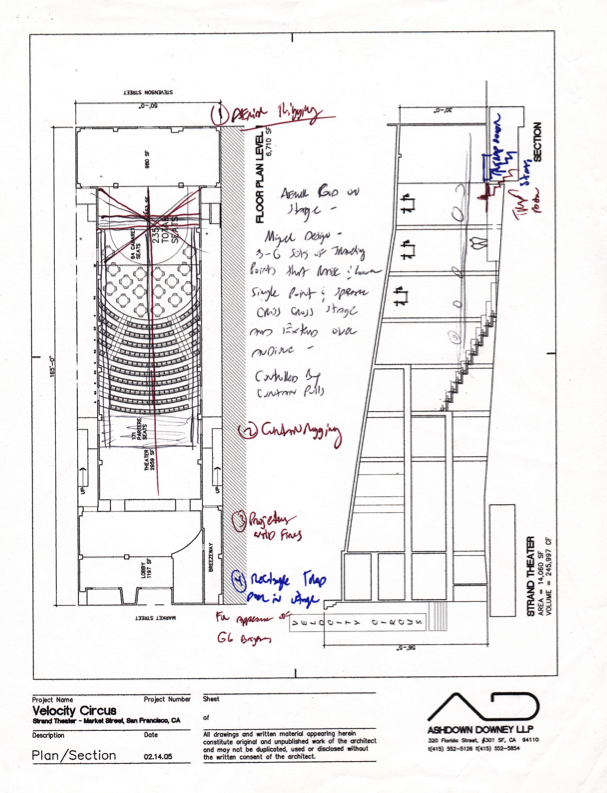 STEVENSON STREET
50'-0"
① Aerial Rigging
FLOOR PLAN LEVEL 1
6,710 SF
980 SF
235
TOTAL
SEATS
64 CABARET
SEATS
171
PARTERRE
SEATS
THEATER
2959 SF
UP
UP
LOBBY
1197 SF
BREEZEWAY
MARKET STREET
165'-0"
Aerial Grid on
stage -
Design -
3-6 Sets of
Points that Raise & lower
Single Point &
Criss Cross Stage
and Extend over
audience -
Controlled By
Curtain Pulls
② Curtain Rigging
③ Projectors
and Fans
④ Rectangle Trap
Door in stage
For appearance of
30'-0"
SECTION
Trap room
Stairs
Trap
Door
STRAND THEATER
AREA = 14,060 SF
VOLUME = 245,997 CF
VELOCITY CIRCUS
56'-5"
Project Name
Project Number
Velocity Circus
Strand Theater - Market Street, San Francisco, CA
Description
Date
Plan/Section
02.14.05
Sheet
of
All drawings and written material appearing herein
constitute original and unpublished work of the architect
and may not be duplicated, used or disclosed without
the written consent of the architect.
AD
ASHDOWN DOWNEY LLP
320 Florida Street, #301 SF, CA 94110
t(415) 552-5126 f(415) 552-5854